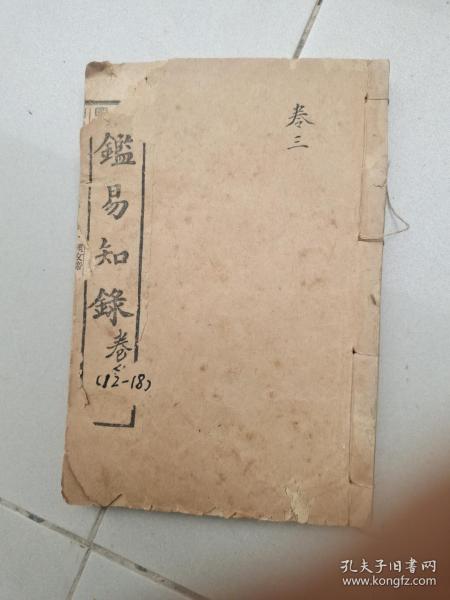 卷三
鑑易知錄
卷
(12-18)
孔夫子旧书网
www.kongfz.com